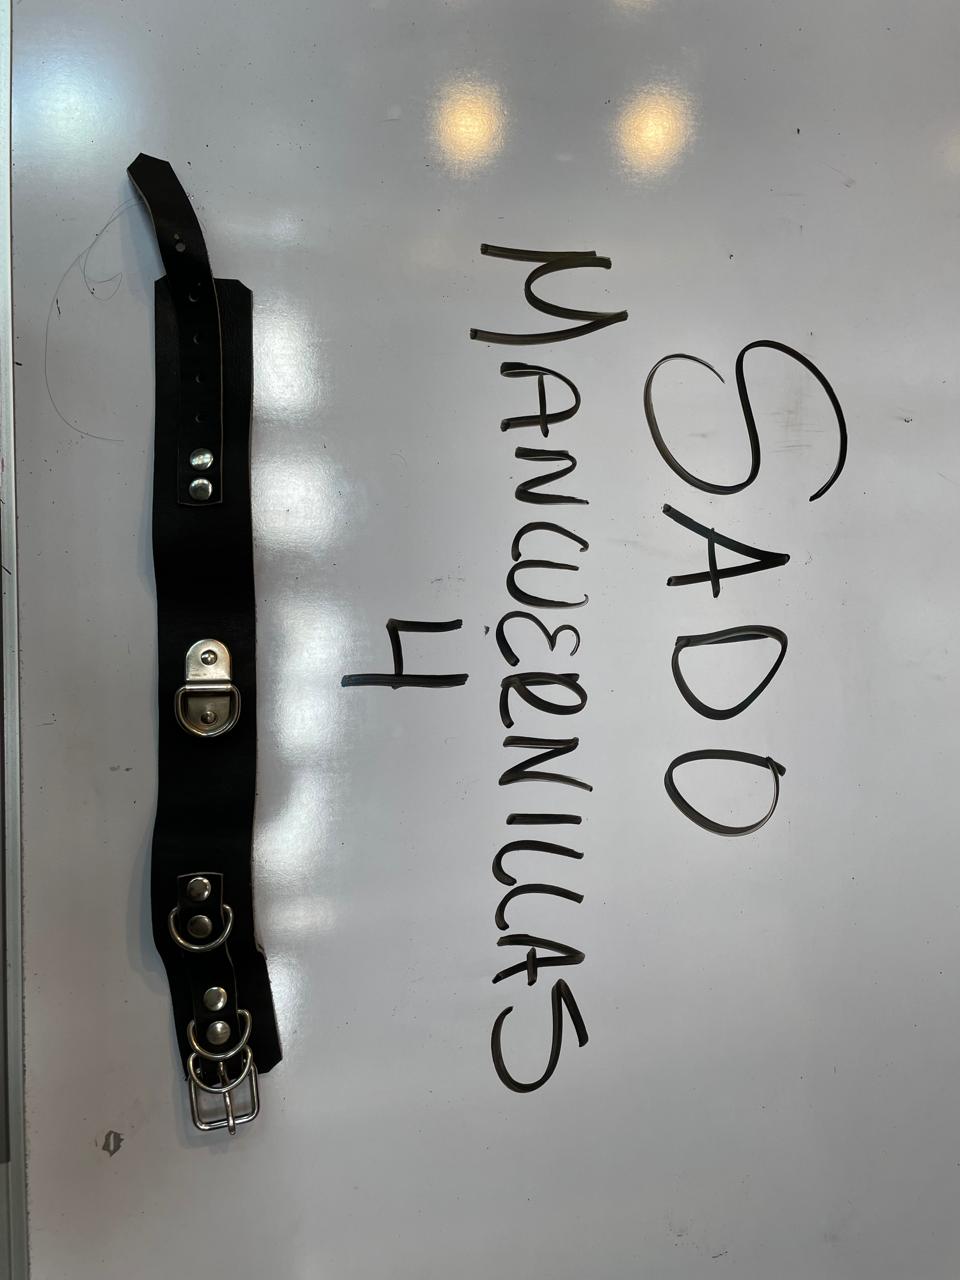 SADO
MANCUERNILLAS
4